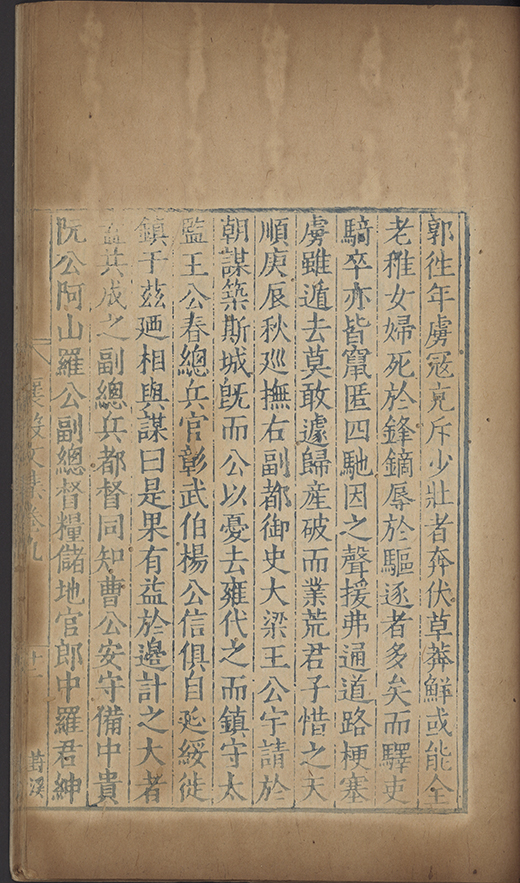 郭徃年虜冦充斥少壯者奔伏草莽鮮或能全
老稚女婦死於鋒鏑辱於驅逐者多矣而驛吏
騎卒亦皆竄匿四馳因之聲援弗通道路梗塞
虜雖遁去莫敢遽歸産破而業荒君子惜之天
順庚辰秋廵撫右副都御史大梁王公宇請於
朝謀築斯城旣而公以憂去雍代之而鎮守太
監王公春總兵官彰武伯楊公信俱自延綏徙
鎮于玆廼相與謀曰是果有益於邊計之大者
盍共成之副總兵都督同知曹公安守備中貴
阮公阿山羅公副總督糧儲地官郎中羅君紳
襄毅文集卷九
十一